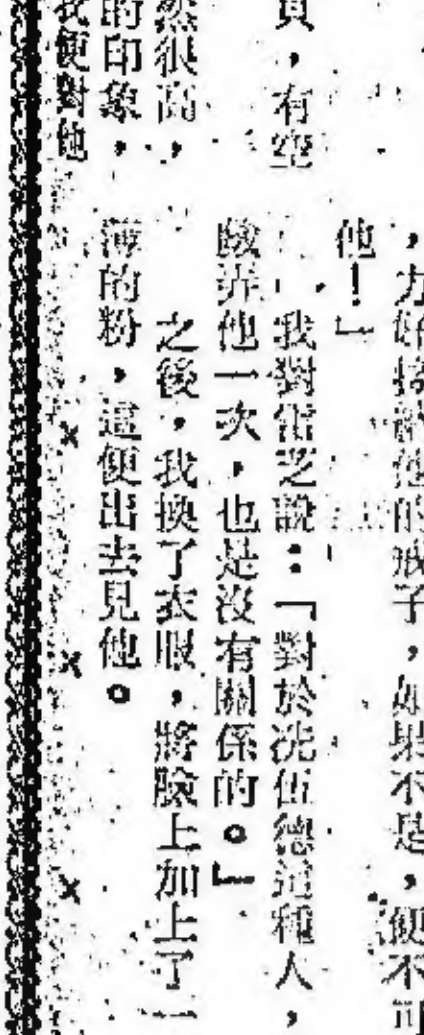 頁，有空
然很高，
的印象，
我便對他
，才好接受他的戒子，如果不是，便不可
他！」
我對雷芝說：「對於冼伍德這種人，
戲弄他一次，也是沒有關係的。」
之後，我換了衣服，將臉上加上了一
薄的粉，這便出去見他。
× × ×